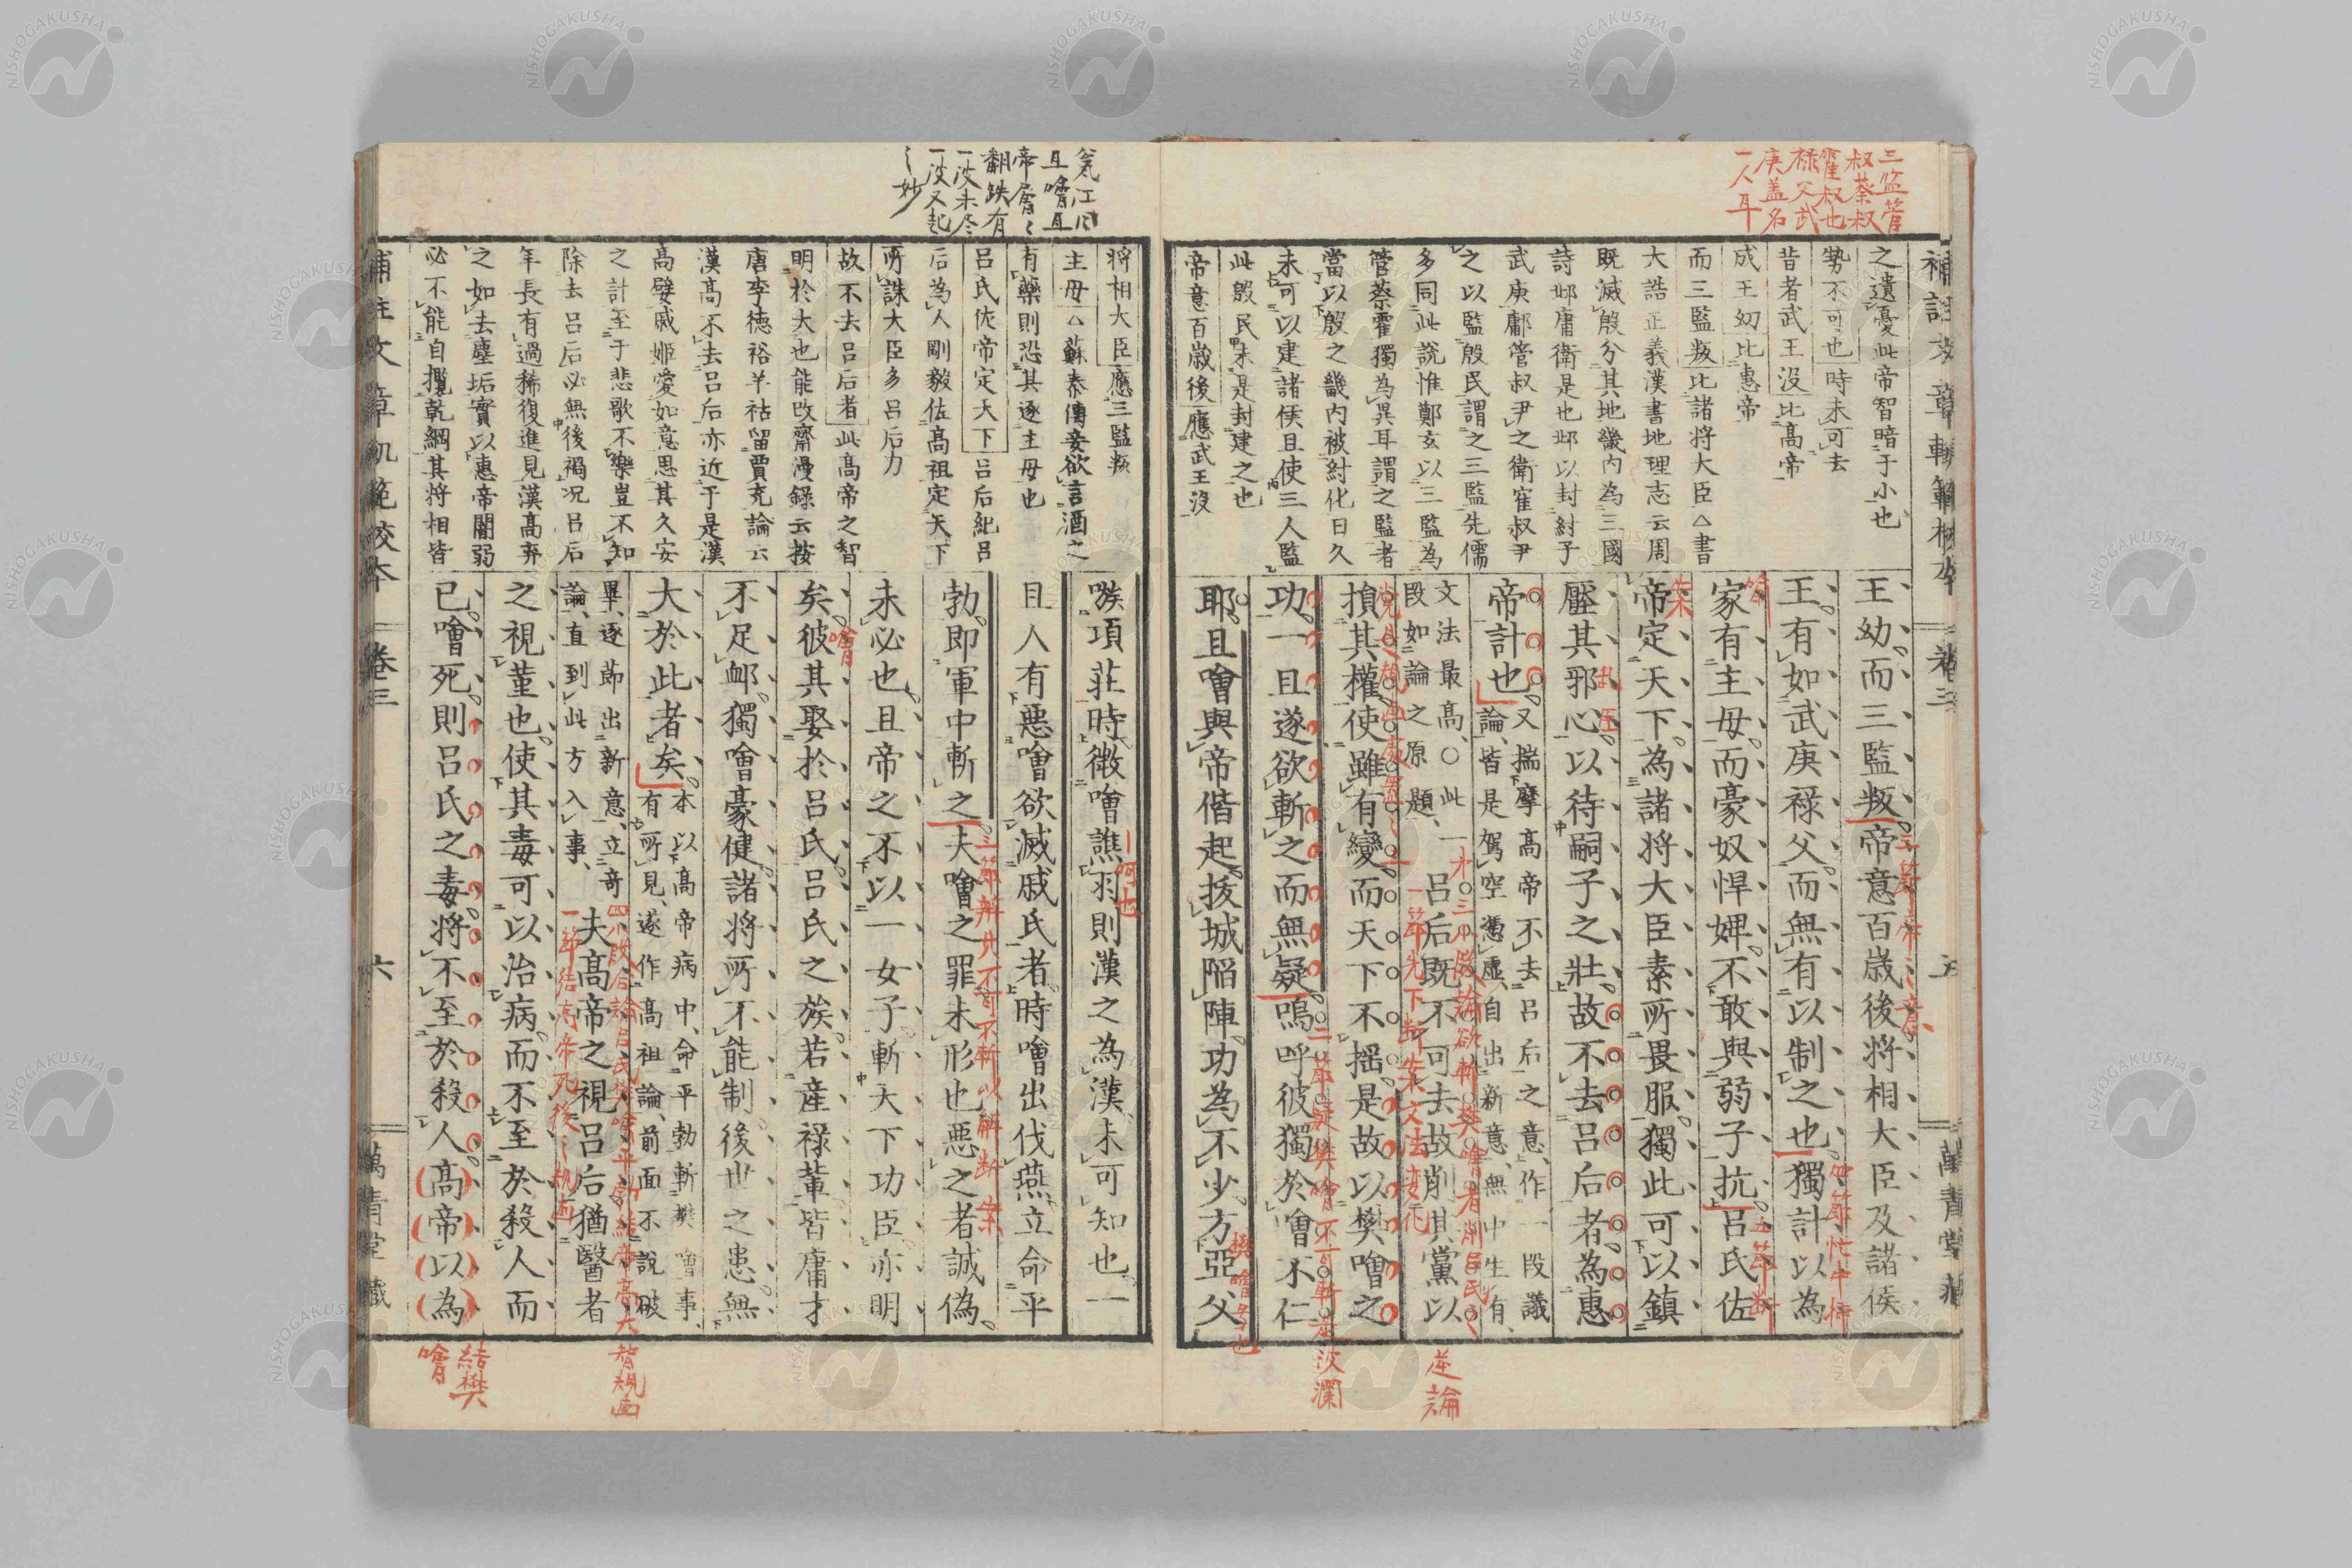 三監管
叔蔡叔
霍叔也
禄父武
庚盖名
一人耳
之遺憂此帝智暗于小也
勢不可也時未可去
昔者武王没比高帝
成王幼比惠帝
而三監叛比諸将大臣△書
大誥正義漢書地理志云周
既滅殷分其地畿内為三國
詩邶庸衛是也邶以封紂子
武庚鄘管叔尹之衛霍叔尹
之以監殷民謂之三監先儒
多同此説惟鄭玄以三監為
管蔡霍獨為異耳謂之監者
當以殷之畿内被紂化日久
未可以建諸侯且使三人監
此殷民未是封建之也
帝意百歳後應武王没
王幼而三監叛帝意百歳後将相大臣及諸侯
王有如武庚禄父而無有以制之也獨計以為
家有主母而豪奴悍婢不敢與弱子抗呂氏佐
帝定天下為諸将大臣素所畏服獨此可以鎮
壓其邪心以待嗣子之壯故不去呂后者為惠
帝計也
又揣摩高帝不去呂后之意作一段議
論皆是駕空憑虚自出新意無中生有
文法最高○此一
段如論之原題
呂后既不可去故削其黨以
損其權使雖有變而天下不揺是故以樊噲之
功一旦遂欲斬之而無疑嗚呼彼獨於噲不仁
耶且噲與帝偕起抜城陥陣功為不少方亞父
樊噲字也
逆論
補註文章軌範校本
巻三
五
萬青堂藏
氣江河
且噲且
帝層〻
翻跌有
一波未尽
一波又起
之妙
将相大臣應三監叛
主母△蘇秦傳妾欲言酒之
有藥則恐其逐主母也
呂氏佐帝定天下呂后紀呂
后為人剛毅佐高祖定天下
所誅大臣多呂后力
故不去呂后者此高帝之智
明於大也能改齋漫録云按
唐李徳裕羊祜留賈充論云
漢高不去呂后亦近于是漢
高嬖戚姫愛如意思其久安
之計至于悲歌不樂豈不知
除去呂后必無後禍况呂后
年長有過稀復進見漢高弃
之如去塵垢實以惠帝闇弱
必不能自攬乾綱其将相皆
嗾項莊時微噲譙羽則漢之為漢未可知也一
旦人有悪噲欲滅戚氏者時噲出伐燕立命平
勃即軍中斬之夫噲之罪未形也悪之者誠偽
未必也且帝之不以一女子斬天下功臣亦明
矣彼其娶於呂氏呂氏之族若産禄輩皆庸才
不足衂獨噲豪健諸将所不能制後世之患無
大於此者矣
本以高帝病中命平勃斬樊噲事
有所見遂作高祖論前面不説破
畢逐節出新意立奇
論直到此方入事
夫高帝之視呂后猶醫者
之視菫也使其毒可以治病而不至於殺人而
已噲死則呂氏之毒将不至於殺人高帝以為
結樊
噲
補註文章軌範校本
巻三
六
萬青堂藏